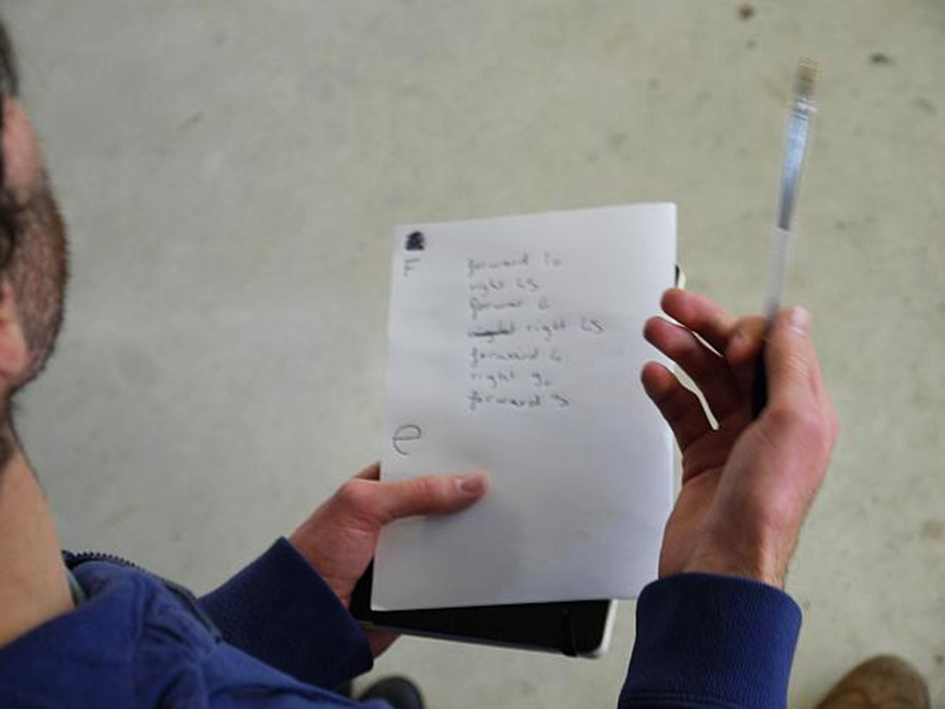 F
forward 10
right 45
forwar 6
right 45
forward 6
right 90
forward 3
e